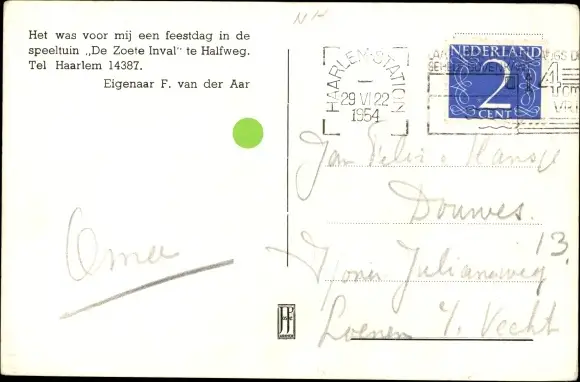 Het was voor mij een feestdag in de
speeltuin „De Zoete Inval" te Halfweg.
Tel Haarlem 14387.
Eigenaar F. van der Aar
Oma
NH
HAARLEM-STATION
29 VI 22
1954
NEDERLAND
2
CENT
4
Jan
Hansje
Douwes.
13
Julianaweg
Loenen a/ Vecht